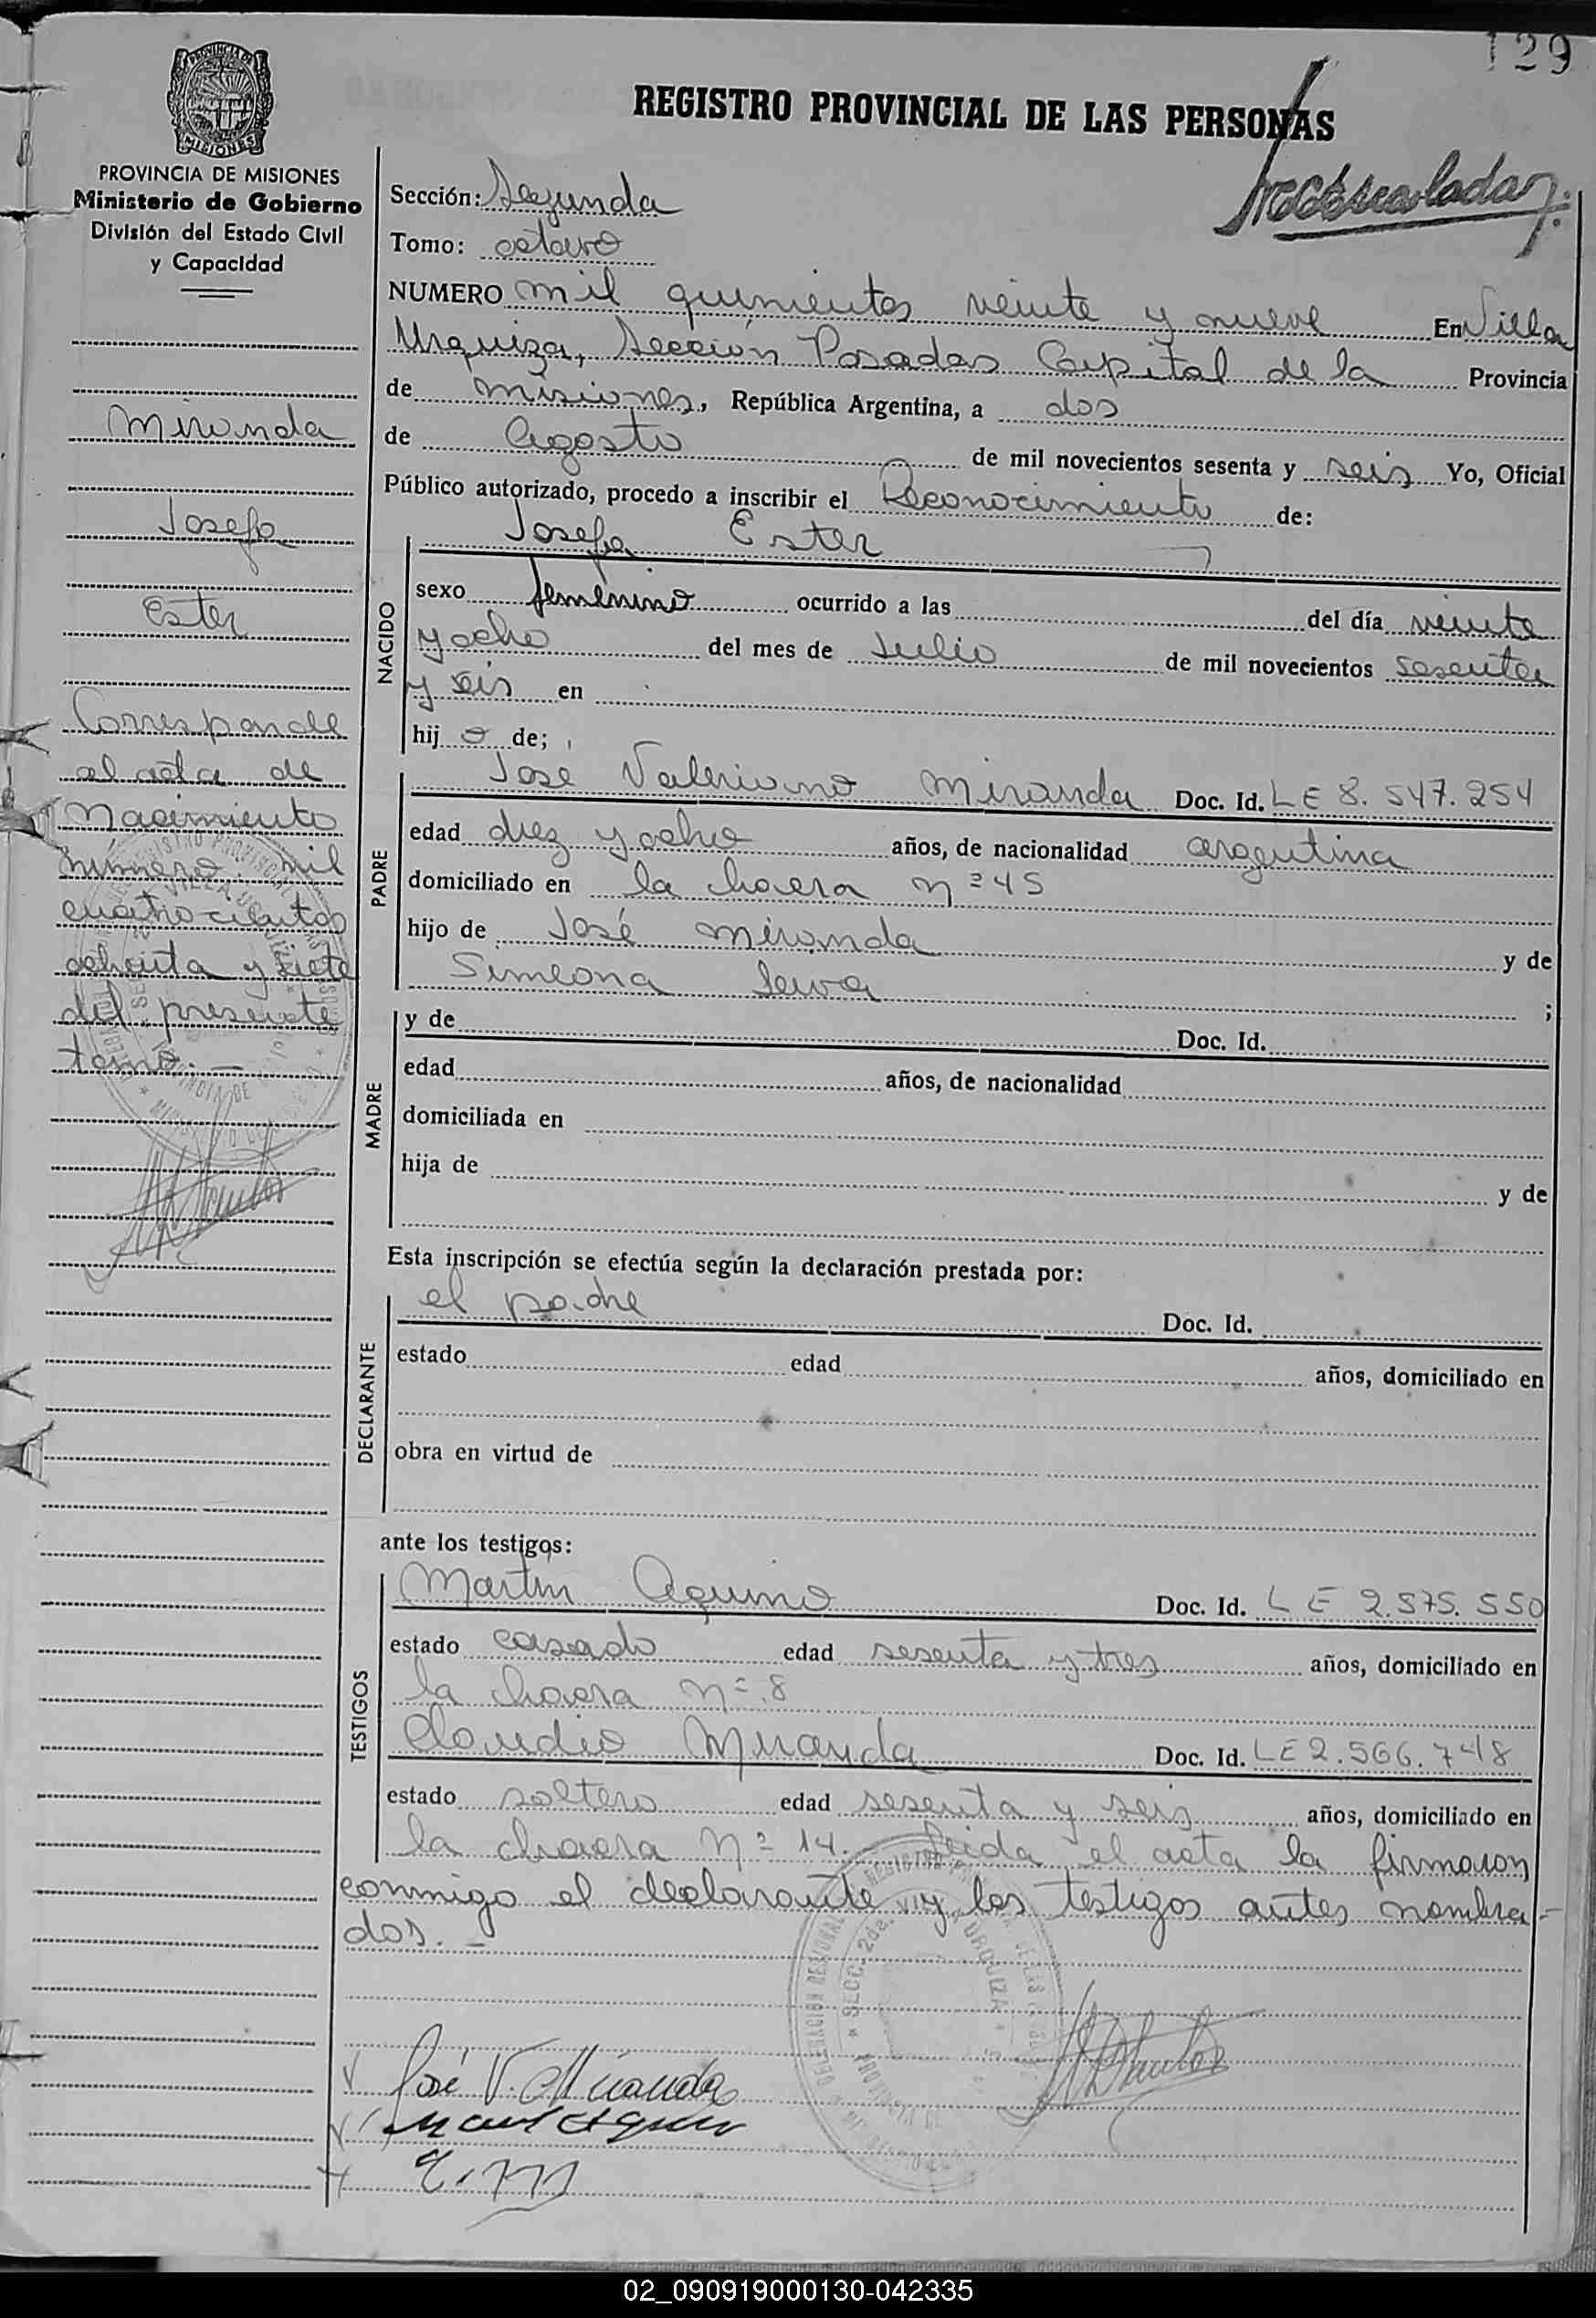 129
PROVINCIA DE MISIONES
Ministerio de Gobierno
División del Estado Civil
y Capacidad
Miranda
Josefa
Ester
Corresponde
al acta de
Nacimiento
número mil
cuatrocientos
ochenta y siete
del presente
tomo.-
REGISTRO PROVINCIAL DE LAS PERSONAS
Sección: Segunda
Tomo: octavo
NUMERO mil quinientos veinte y nueve En Villa
Urquiza, Sección Posadas Capital de la Provincia
de Misiones, República Argentina, a dos
de Agosto de mil novecientos sesenta y seis Yo, Oficial
Público autorizado, procedo a inscribir el Reconocimiento de:
NACIDO
Josefa Ester
sexo femenino ocurrido a las del día veinte
y ocho del mes de Julio de mil novecientos sesenta
y seis en
hij o de;
PADRE
José Valeriano Miranda Doc. Id. LE 8.547.254
edad diez y ocho años, de nacionalidad argentina
domiciliado en la chacra nº 45
hijo de José Miranda y de
Simeona ;
MADRE
y de Doc. Id.
edad años, de nacionalidad
domiciliada en
hija de y de
Esta inscripción se efectúa según la declaración prestada por:
DECLARANTE
el padre Doc. Id.
estado edad años, domiciliado en
obra en virtud de
ante los testigos:
TESTIGOS
Martin Aquino Doc. Id. LE 2.575.550
estado casado edad sesenta y tres años, domiciliado en
la chacra nº 8
Claudio Miranda Doc. Id. LE 2.566.748
estado soltero edad sesenta y seis años, domiciliado en
la chacra Nº 14. Leida el acta la firmaron
conmigo el declarante y los testigos antes nombra-
dos.-
José V. Miranda
02_090919000130-042335